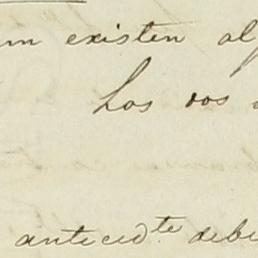 um existen al
Los dos
anteced.te debi